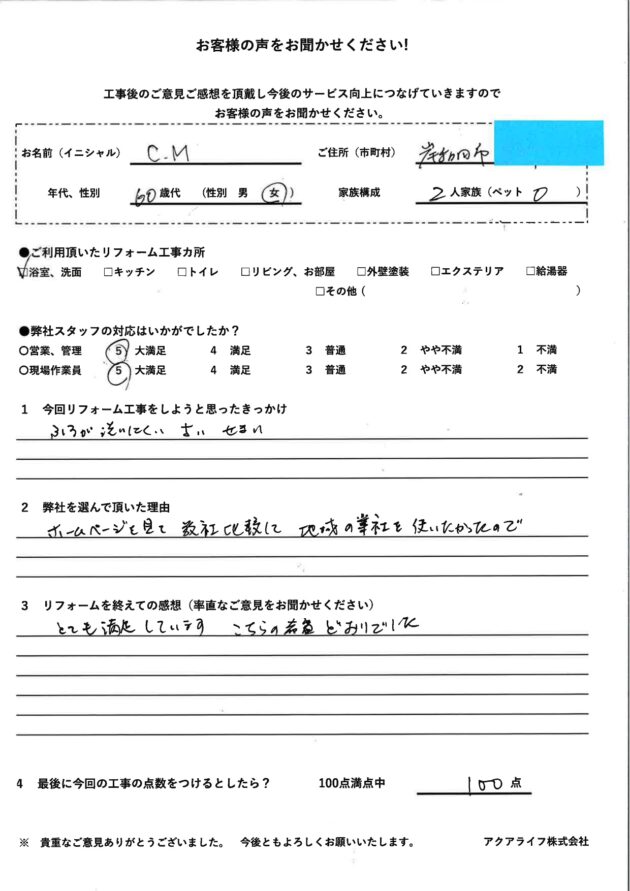 お客様の声をお聞かせください!
工事後のご意見ご感想を頂戴し今後のサービス向上につなげていきますので
お客様の声をお聞かせください。
お名前（イニシャル） C.M ご住所（市町村） 岸和田市
年代、性別 60歳代 （性別 男 女） 家族構成 2人家族（ペット 0 ）
●ご利用頂いたリフォーム工事カ所
☑浴室、洗面 □キッチン □トイレ □リビング、お部屋 □外壁塗装 □エクステリア □給湯器
□その他（ ）
●弊社スタッフの対応はいかがでしたか？
○営業、管理 5 大満足 4 満足 3 普通 2 やや不満 1 不満
○現場作業員 5 大満足 4 満足 3 普通 2 やや不満 2 不満
1 今回リフォーム工事をしようと思ったきっかけ
ふろが洗いにくい 古い せまい
2 弊社を選んで頂いた理由
ホームページを見て 数社比較して 地域の業社を使いたかったので
3 リフォームを終えての感想（率直なご意見をお聞かせください）
とても満足しています こちらの希望どおりでした
4 最後に今回の工事の点数をつけるとしたら？ 100点満点中 100 点
※ 貴重なご意見ありがとうございました。 今後ともよろしくお願いいたします。 アクアライフ株式会社